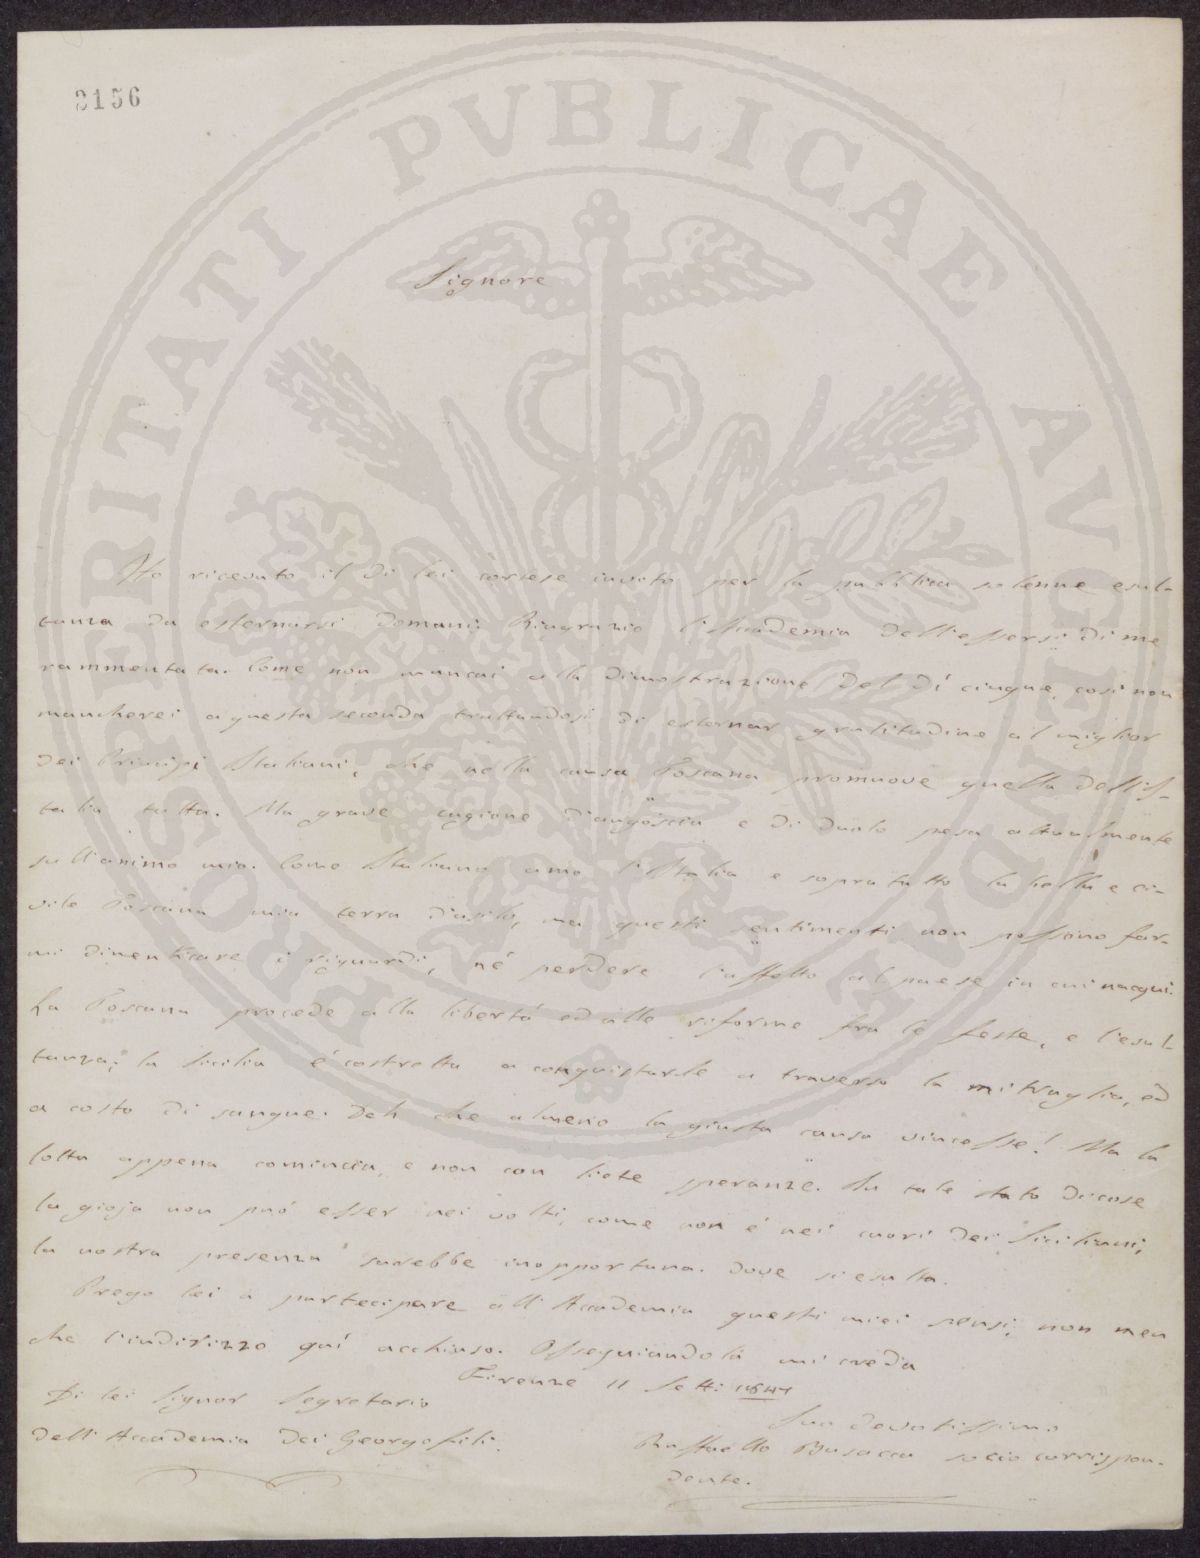 3156
PROSPERITATI PVBLICAE AVGENDAE
Signore
Ho ricevuto il di lei cortese invito per la pubblica solenne esul-
tanza da esternarsi domani. Ringrazio l'Accademia dell'essersi di me
rammentata. Come non mancai alla dimostrazione del dí cinque, cosí non
mancherei a questa seconda trattandosi di esternar gratitudine al miglior
dei Principi Italiani, che nella causa Toscana promuove quella dell'I-
talia tutta. Ma grave cagione d'angoscia e di duolo pesa attualmente
sull'animo mio. Come Italiano amo l'Italia e sopratutto la bella e ci-
vile Toscana mia terra d'asilo, ma questi sentimenti non possono far-
mi dimenticare i riguardi, né perdere l'affetto al paese in cui nacqui.
La Toscana procede alla libertá ed alle riforme fra le feste, e l'esul-
tanza; la Sicilia é costretta a conquistarle a traverso la mitraglia, ed
a costo di sangue. Deh che almeno la giusta causa vincesse! Ma la
lotta appena comincia, e non con liete speranze. In tale stato di cose
la gioja non puó esser nei volti, come non é nei cuori dei Siciliani,
la nostra presenza sarebbe inopportuna dove si esulta.
Prego lei a partecipare all'Accademia questi miei sensi, non men
che l'indirizzo quí acchiuso. Ossequiandola mi creda
Firenze 11 Setti 1847
Di lei Signor Segretario
dell'Accademia dei Georgofili.
Suo devotissimo
Raffaello Busacca socio corrispon-
dente.